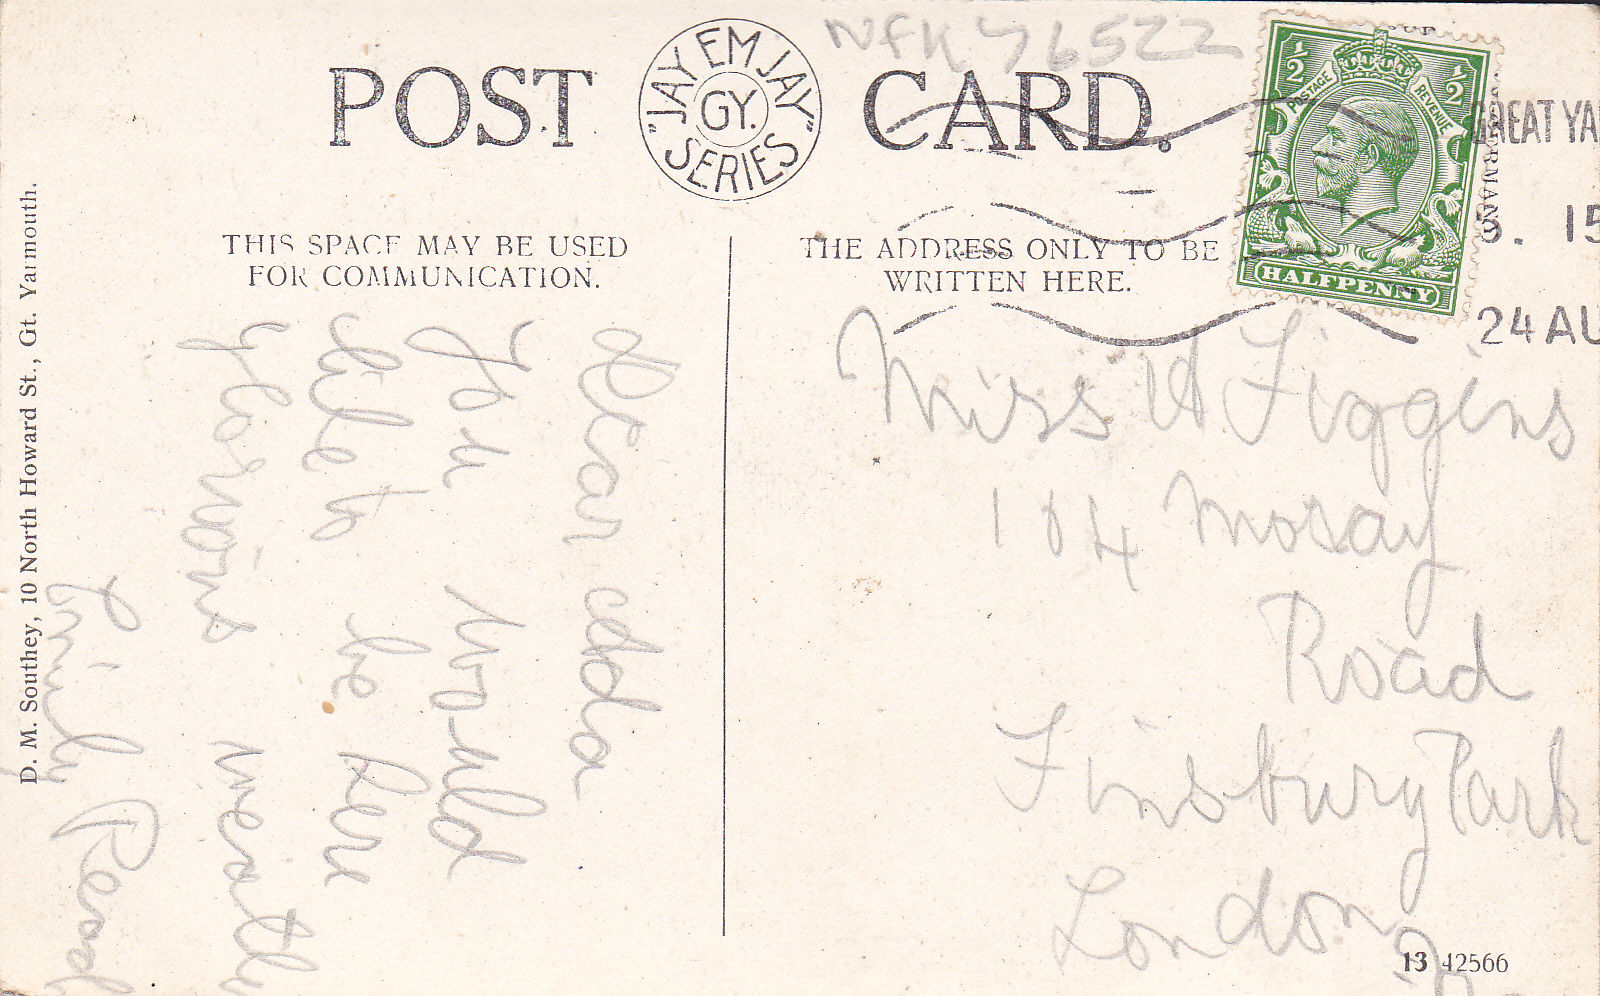 Nfk 76522
POST CARD.
"JAY EM JAY"
GY.
SERIES
THIS SPACE MAY BE USED
FOR COMMUNICATION.
THE ADDRESS ONLY TO BE
WRITTEN HERE.
POSTAGE REVENUE
½ ½
HALFPENNY
GREAT YA
15
24 AU
Dear Ada
You would
like to be here
glorious weathe
Emily Read
Miss A Figgins
104 Moray
Road
Finsbury Park
London
13 42566
D. M. Southey, 10 North Howard St., Gt. Yarmouth.